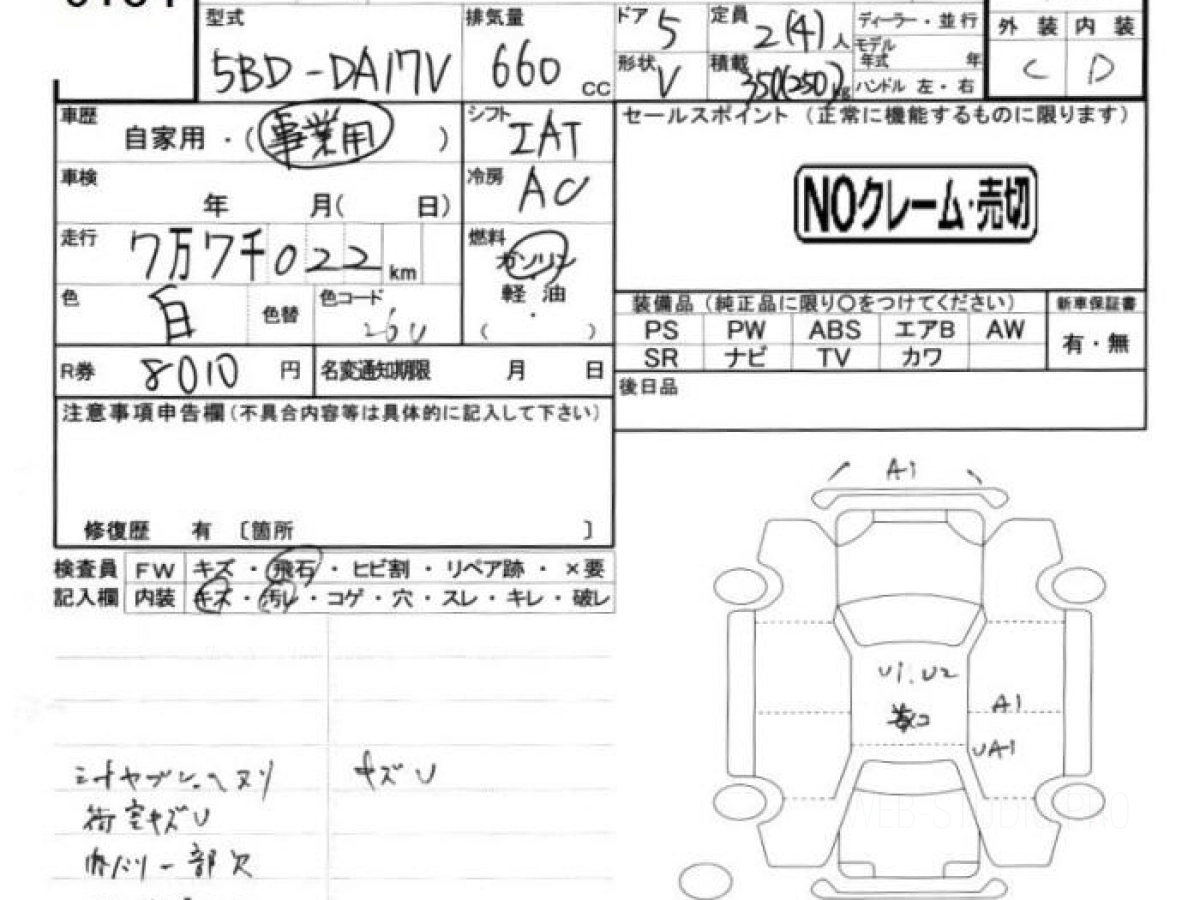 型式
5BD-DA17V
排気量
660 cc
ドア
5
定員
2(4)人
ディーラー・並行
モデル年式 年
形状
V
積載
350(250)kg
ハンドル 左・右
外装 内装
C D
車歴
自家用・(事業用)
シフト
IAT
セールスポイント (正常に機能するものに限ります)
NOクレーム・売切
車検
年 月( 日)
冷房
AC
走行
7万7千022 km
燃料
ガソリン
・
軽油
( )
色
白
色替
色コード
26U
装備品 (純正品に限り○をつけてください)
新車保証書
PS PW ABS エアB AW
SR ナビ TV カワ
有・無
R券
8010 円
名変通知期限 月 日
後日品
注意事項申告欄(不具合内容等は具体的に記入して下さい)
修復歴 有 〔箇所 〕
検査員 FW キズ・飛石・ヒビ割・リペア跡・×要
記入欄 内装 キズ・汚レ・コゲ・穴・スレ・キレ・破レ
A1
U1.U2
コ
A1
UA1
キズU
荷室キズU
一部欠
WEB-STUDIO.PRO